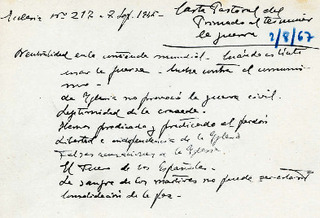 Ecclesia nº 217 - 7 Sep. 1945 -
Carta Pastoral del
Primado al terminar
la guerra
2/8/67
Neutralidad en la contienda mundial. Cuándo es lícito
usar la fuerza - Lucha contra el comunis-
mo -
La Iglesia no provocó la guerra civil.
Legitimidad de la cruzada.
Hemos predicado y practicado el perdón
Libertad e independencia de la Iglesia
Falsas acusaciones a la Iglesia.
El Fuero de los Españoles.
La sangre de los mártires no puede ser estéril
Consolidación de la paz -